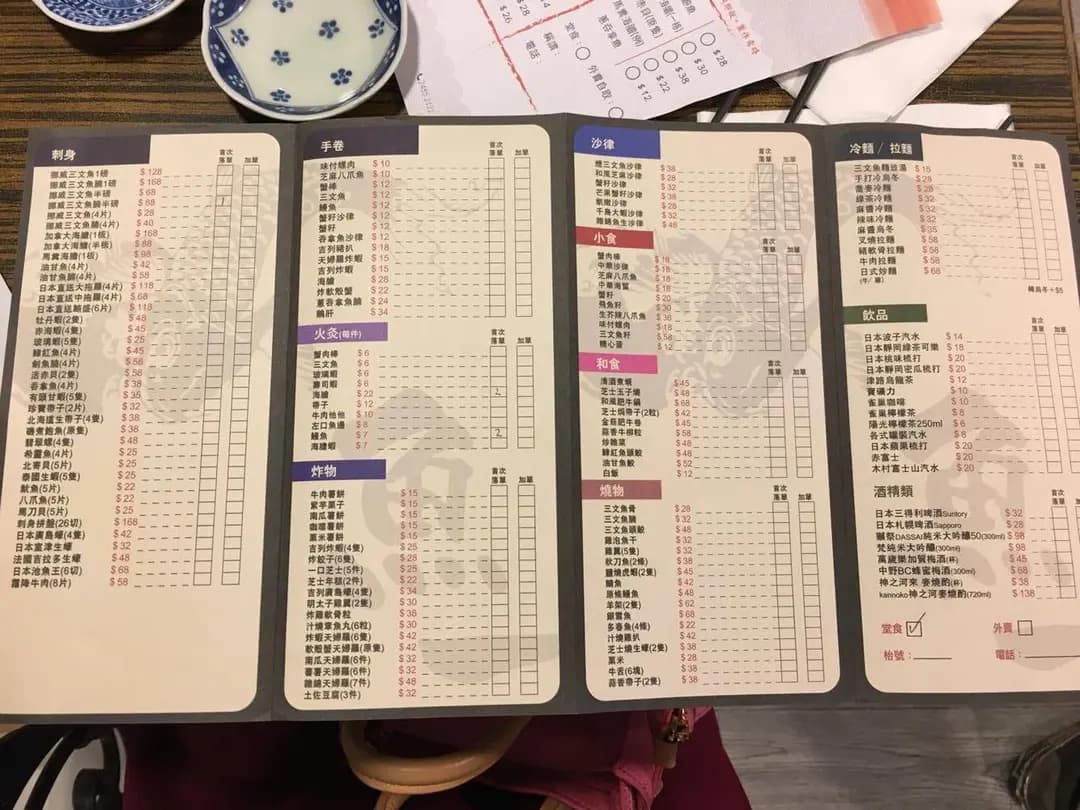 $28
$30
$38
$22
$12
$28
$26
堂食:
外賣自取:
稱謂:
電話:
刺身
首次
落單 加單
挪威三文魚1磅 $128
挪威三文魚腩1磅 $168
挪威三文魚半磅 $68
挪威三文魚腩半磅 $88 1
挪威三文魚(4片) $28
挪威三文魚腩(4片) $40
加拿大海膽(1板) $168
加拿大海膽(半板) $88
馬糞海膽(1板) $98
油甘魚(4片) $42
油甘魚腩(4片) $58
日本直送大拖羅(4片) $118
日本直送中拖羅(4片) $68
日本直送輪盛(6片) $118
牡丹蝦(2隻) $48
赤海蝦(4隻) $45
玻璃蝦(5隻) $25
緣紅魚(4片) $45
劍魚腩(4片) $58
活赤貝(2隻) $56
吞拿魚(4片) $38
有頭甘蝦(5隻) $35
珍寶帶子(2片) $32
北海道生帶子(4隻) $38
磯煮鮑魚(原隻) $38
翡翠螺(4隻) $48
希靈魚(4片) $25
北寄貝(5片) $25
泰國生蝦(5隻) $25
魷魚(5片) $22
八爪魚(5片) $22
馬刀貝(5片) $25
刺身拼盤(26切) $168
日本廣島蠔(4隻) $42
日本室津生蠔 $32
法國吉拉多生蠔 $48
日本池魚王(6切) $68
霜降牛肉(8片) $58
手卷
首次
落單 加單
味付螺肉 $10
芝麻八爪魚 $10
蟹棒 $12
三文魚 $12
鰻魚 $12
蟹籽沙律 $12
蟹籽 $12
吞拿魚沙律 $12
吉列豬扒 $18
天婦羅炸蝦 $15
吉列炸蝦 $15
海膽 $28
炸軟殼蟹 $22
蔥吞拿魚腩 $24
鵝肝 $34
火灸(每件)
首次
落單 加單
蟹肉棒 $6
三文魚 $6
玻璃蝦 $6
壽司蝦 $6
海膽 $22 2
帶子 $12
牛肉他他 $10
左口魚邊 $8
鰻魚 $7 2
海膽蝦 $7
炸物
首次
落單 加單
牛肉薯餅 $15
紫亭菓子 $15
南瓜薯餅 $15
咖喱薯餅 $15
粟米薯餅 $15
吉列炸蝦(4隻) $25
炸餃子(6隻) $28
一口芝士(5件) $25
芝士年糕(2件) $22
吉列廣島蠔(4隻) $34
明太子雞翼(2隻) $30
炸雞軟骨粒 $38
汁燒章魚丸(6粒) $30
炸蝦天婦羅(6隻) $45
軟殼蟹天婦羅(原隻) $42
南瓜天婦羅(6件) $32
番薯天婦羅(6件) $32
雜錦天婦羅(7件) $48
土佐豆腐(3件) $32
沙律
首次
落單 加單
煙三文魚沙律 $38
和風芝麻沙律 $28
蟹籽沙律 $32
芒果蟹籽沙律 $38
凱撒沙律 $28
千島大蝦沙律 $32
雜錦魚生沙律 $48
小食
首次
落單 加單
蟹肉棒 $18
中華沙律 $18
芝麻八爪魚 $18
中華海蜇 $18
蟹籽 $20
飛魚籽 $30
生芥辣八爪魚 $38
味付螺肉 $18
三文魚籽 $58
糖心蛋 $12
和食
首次
落單 加單
清酒煮蜆 $45
芝士玉子燒 $48
和風肥牛鍋 $68
芝士焗帶子(2粒) $42
金菇肥牛卷 $45
蒜香牛柳粒 $58
炒雜菜 $48
緣紅魚頭鮫 $48
油甘魚鮫 $52
白飯 $12
燒物
首次
落單 加單
三文魚骨 $28
三文魚腩 $32
三文魚頭鮫 $48
雞泡魚干 $32
雞翼(5隻) $32
秋刀魚(2條) $38
鹽燒虎蝦(2隻) $45
鯖魚 $42
原條鰻魚 $48
羊架(2隻) $62
銀鱈魚 $68
多春魚(4條) $22
汁燒雞扒 $42
芝士燒生蠔(2隻) $38
粟米 $28
牛舌(6塊) $38
蒜香帶子(2隻) $38
冷麵 / 拉麵
首次
落單 加單
三文魚麵豉湯 $15
手打冷烏冬 $28
蕎麥冷麵 $28
綠茶冷麵 $32
麻醬冷麵 $32
辣味冷麵 $32
麻醬烏冬 $35
叉燒拉麵 $58
豬軟骨拉麵 $58
牛肉拉麵 $58
日式炒麵 $68
(牛/雞)
轉烏冬+$5
飲品
首次
落單 加單
日本波子汽水 $14
日本靜岡綠茶可樂 $18
日本桃味梳打 $20
日本靜岡密瓜梳打 $20
津路烏龍茶 $12
寶礦力 $10
雀巢咖啡 $10
雀巢檸檬茶 $8
陽光檸檬茶250ml $6
各式罐裝汽水 $8
日本蘋果梳打 $20
赤富士 $20
木村富士山汽水 $20
酒精類
首次
落單 加單
日本三得利啤酒Suntory $32
日本札幌啤酒Sapporo $28
獺祭DASSAI純米大吟釀50(300ml) $98
梵純米大吟釀(300ml) $98
萬歲樂加賀梅酒(杯) $45
中野BC蜂蜜梅酒(300ml) $68
神之河來 麥燒酌(杯) $38
kannoko神之河麥燒酌(720ml) $138
堂食 ✓
外賣
枱號:
電話: